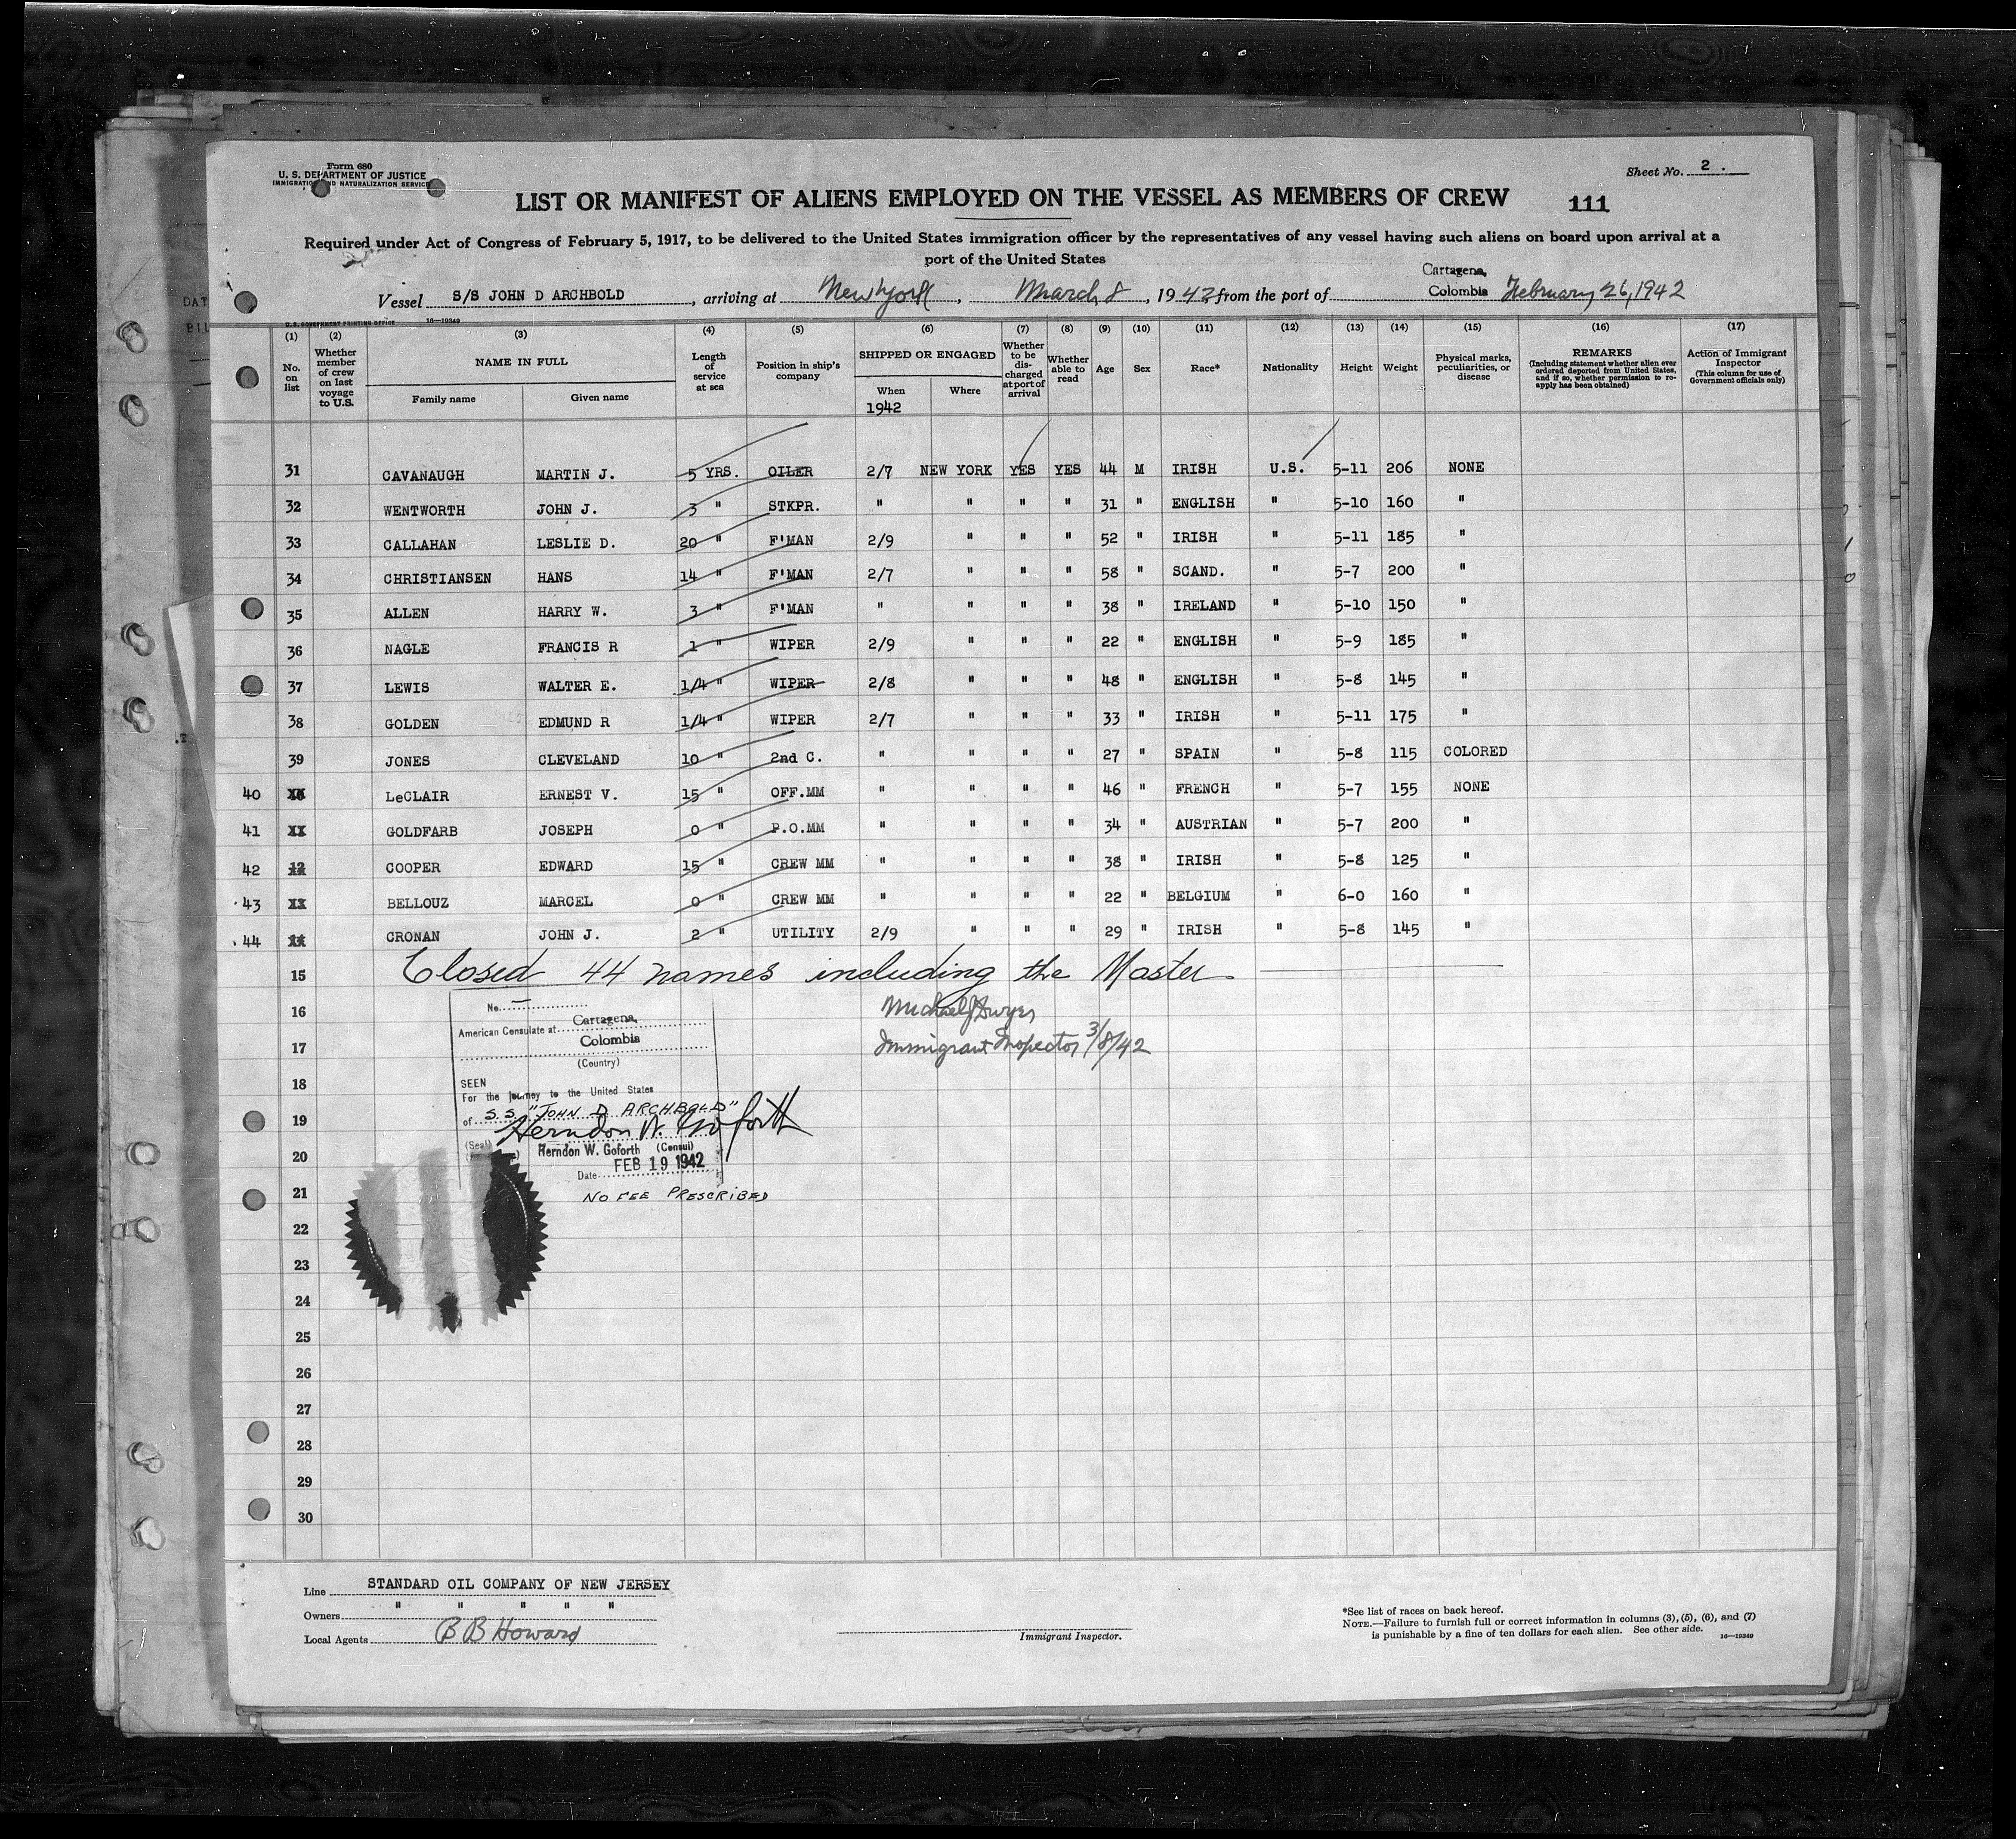 Form 680
U. S. DEPARTMENT OF JUSTICE
IMMIGRATION AND NATURALIZATION SERVICE
Sheet No. 2.
LIST OR MANIFEST OF ALIENS EMPLOYED ON THE VESSEL AS MEMBERS OF CREW 111
Required under Act of Congress of February 5, 1917, to be delivered to the United States immigration officer by the representatives of any vessel having such aliens on board upon arrival at a
port of the United States
Vessel S/S JOHN D ARCHBOLD, arriving at New York, March 8, 1942 from the port of Cartagena, Colombia February 26, 1942
U.S. GOVERNMENT PRINTING OFFICE 16—19349
(1) (2) (3) (4) (5) (6) (7) (8) (9) (10) (11) (12) (13) (14) (15) (16) (17)
No. on list
Whether member of crew on last voyage to U.S.
NAME IN FULL
Family name Given name
Length of service at sea
Position in ship's company
SHIPPED OR ENGAGED
When Where
1942
Whether to be discharged at port of arrival
Whether able to read
Age
Sex
Race*
Nationality
Height
Weight
Physical marks, peculiarities, or disease
REMARKS
(Including statement whether alien ever ordered deported from United States, and if so, whether permission to reapply has been obtained)
Action of Immigrant Inspector
(This column for use of Government officials only)
31 CAVANAUGH MARTIN J. 5 YRS. OILER 2/7 NEW YORK YES YES 44 M IRISH U.S. 5-11 206 NONE
32 WENTWORTH JOHN J. 3 " STKPR. " " " " 31 " ENGLISH " 5-10 160 "
33 CALLAHAN LESLIE D. 20 " F'MAN 2/9 " " " 52 " IRISH " 5-11 185 "
34 CHRISTIANSEN HANS 14 " F'MAN 2/7 " " " 58 " SCAND. " 5-7 200 "
35 ALLEN HARRY W. 3 " F'MAN " " " " 38 " IRELAND " 5-10 150 "
36 NAGLE FRANCIS R 1 " WIPER 2/9 " " " 22 " ENGLISH " 5-9 185 "
37 LEWIS WALTER E. 1/4 " WIPER 2/8 " " " 48 " ENGLISH " 5-8 145 "
38 GOLDEN EDMUND R 1/4 " WIPER 2/7 " " " 33 " IRISH " 5-11 175 "
39 JONES CLEVELAND 10 " 2nd C. " " " " 27 " SPAIN " 5-8 115 COLORED
40 LeCLAIR ERNEST V. 15 " OFF.MM " " " " 46 " FRENCH " 5-7 155 NONE
41 GOLDFARB JOSEPH 0 " P.O.MM " " " " 34 " AUSTRIAN " 5-7 200 "
42 COOPER EDWARD 15 " CREW MM " " " " 38 " IRISH " 5-8 125 "
43 BELLOUZ MARCEL 0 " CREW MM " " " " 22 " BELGIUM " 6-0 160 "
44 CRONAN JOHN J. 2 " UTILITY 2/9 " " " 29 " IRISH " 5-8 145 "
15 Closed 44 names including the Master.
16 Michael J Dwyer
17 Immigrant Inspector 3/8/42
No.
American Consulate at Cartagena,
Colombia
(Country)
18
SEEN
For the journey to the United States
19
of S.S. "JOHN D ARCHBOLD"
Herndon W. Goforth
(Seal) Herndon W. Goforth (Consul)
20
Date FEB 19 1942
21
NO FEE PRESCRIBED
22
23
24
25
26
27
28
29
30
Line STANDARD OIL COMPANY OF NEW JERSEY
Owners " " " " "
Local Agents B B Howard
Immigrant Inspector.
*See list of races on back hereof.
NOTE.—Failure to furnish full or correct information in columns (3), (5), (6), and (7)
is punishable by a fine of ten dollars for each alien. See other side. 16—19349